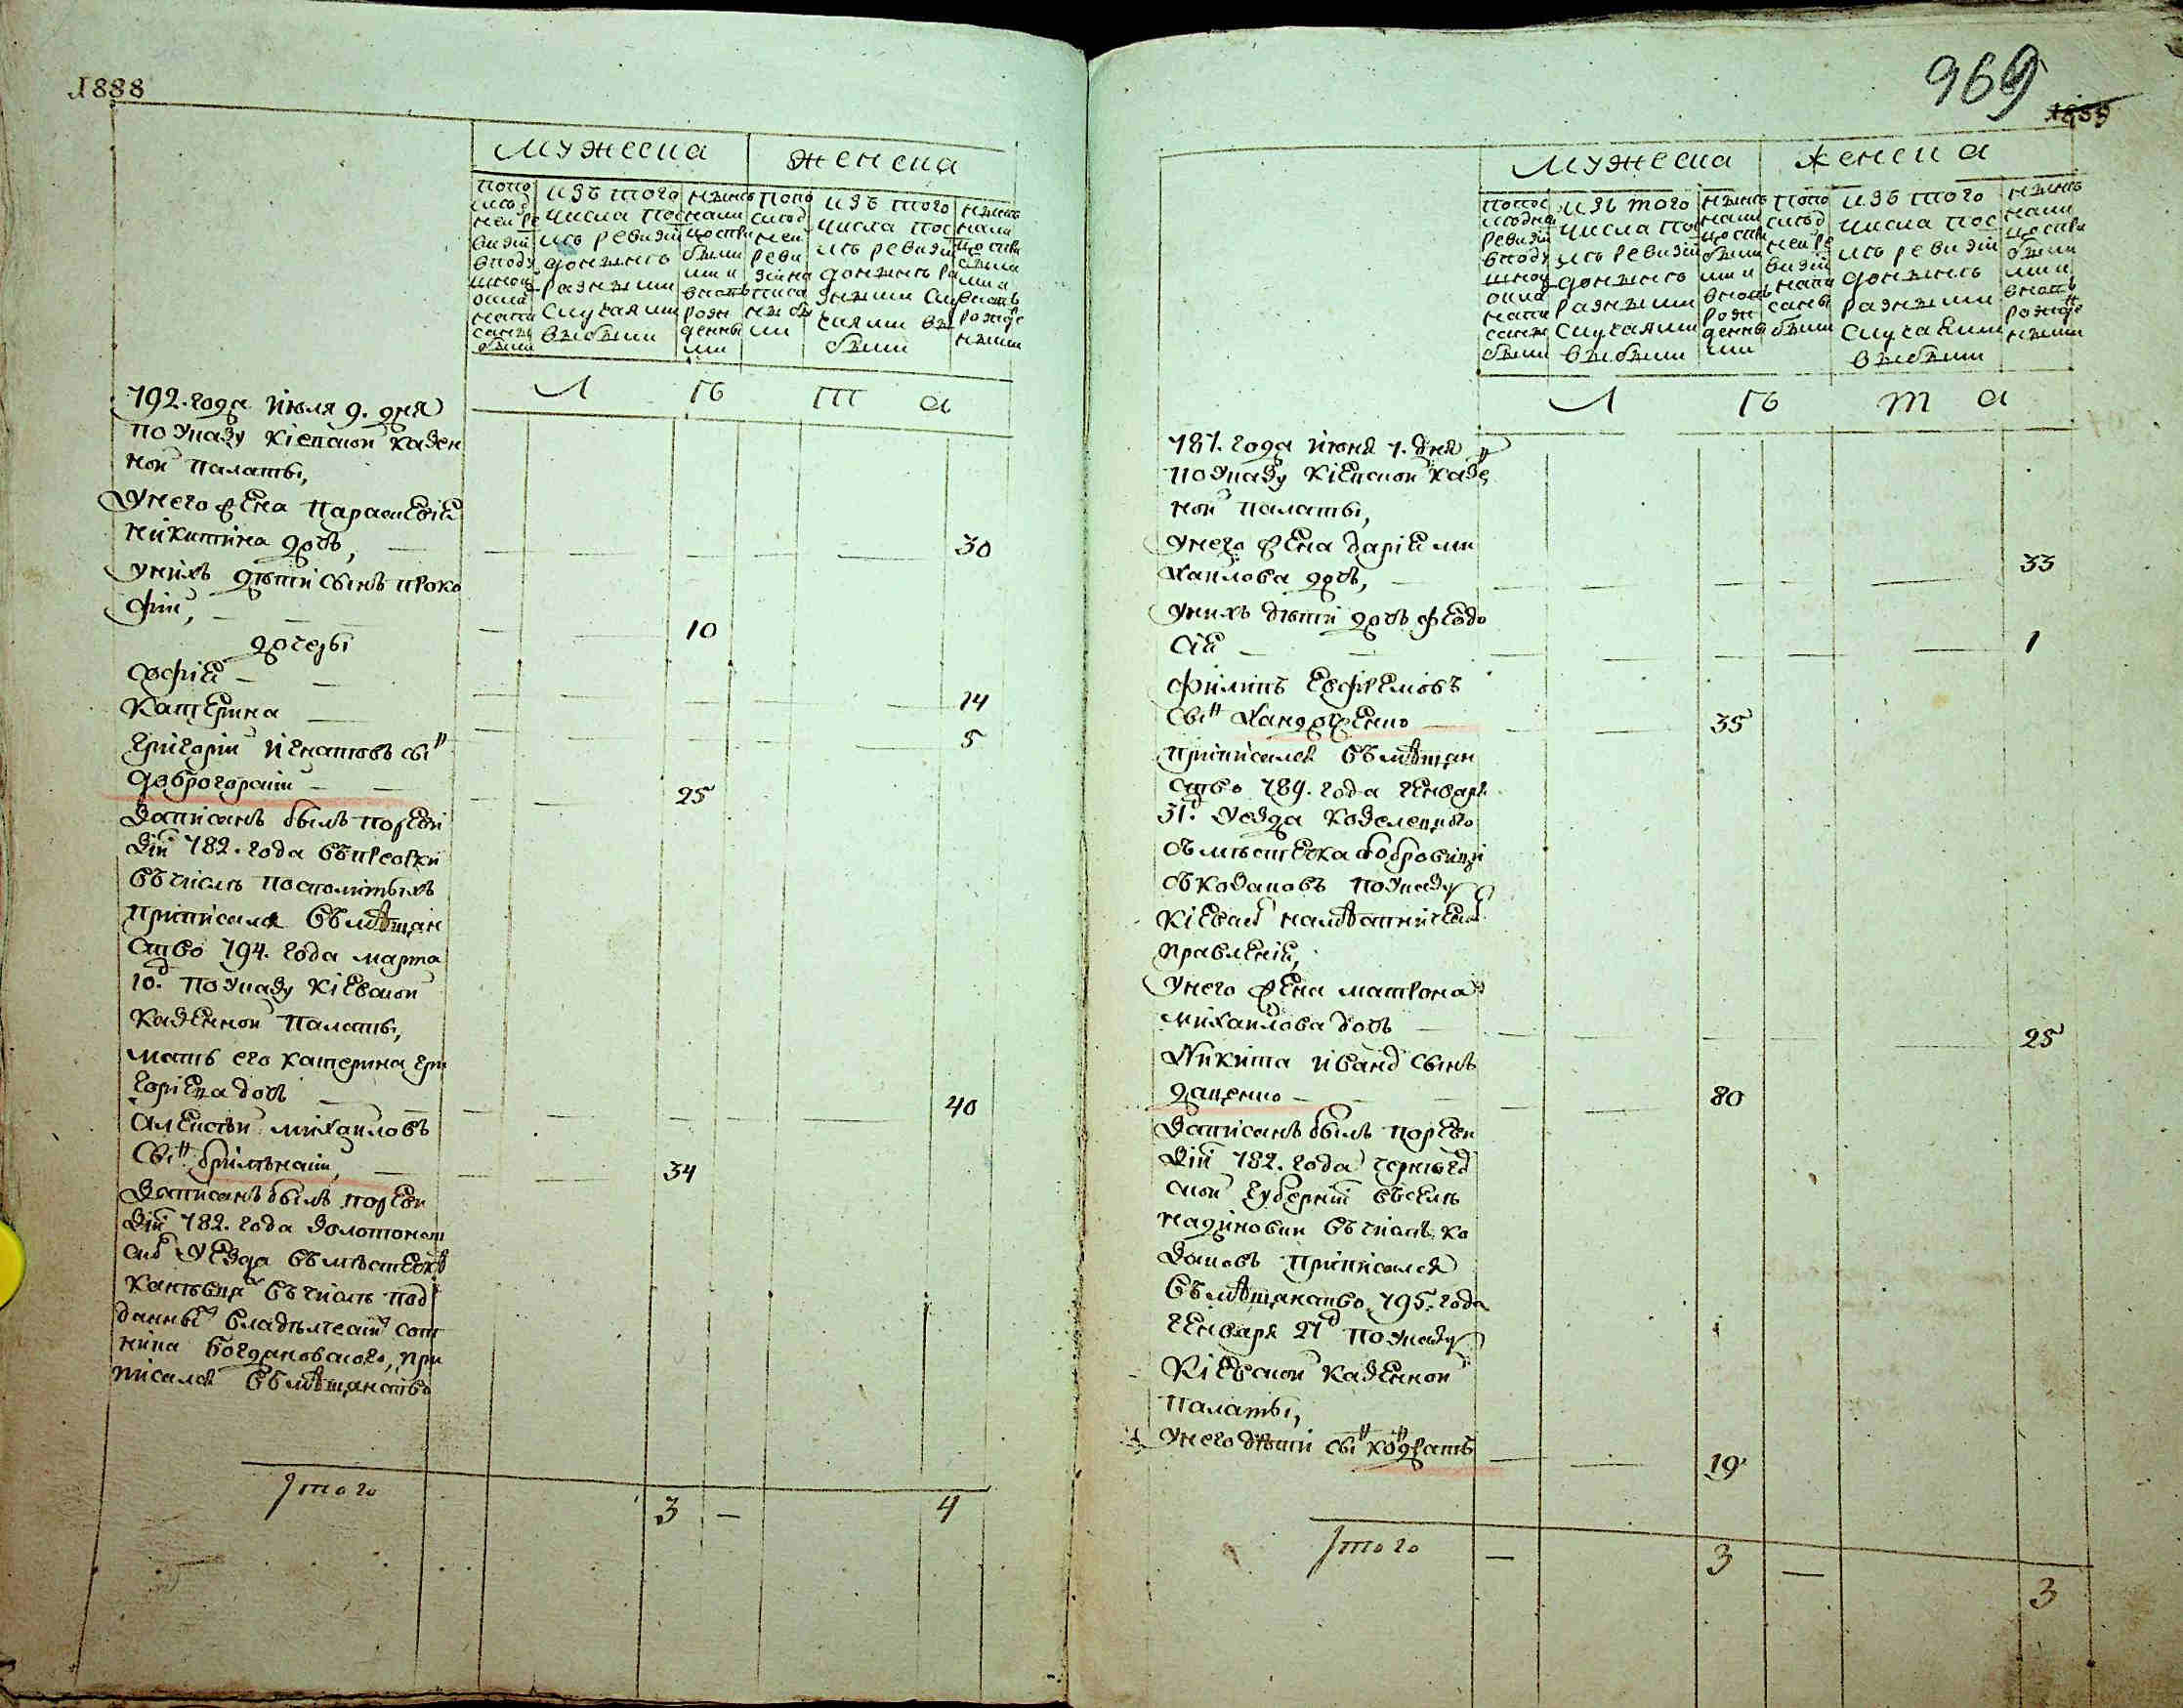 1888
Мужеска
женска
По по
слѣд
ней ре
визіи
въ поду
шной
окла
напи
саны
были
изъ того
числа пос
лѣ ревизіи
донынѣ
разными
случаями
выбыли
нынѣ
нали
цо съ при
были
ми и
вновь
рожд
денны
ми
По по
слѣд
ней
реви
зіи на
писа
ны бы
ли
изъ того
числа пос
лѣ ревизіи
донынѣ ра
зными слу
чаями вы
были
нынѣ
нали
цо съ при
были
ми и
вновь
рожде
нными
Л ѣ т а
792. года июля 9. дня
по указу кіевской казен
ной палаты,
у него жена Параскевія
никитина дочь, 30
у нихъ дѣти сынъ проко
фій, 10
дочери
софія 14
катерина 5
григорій игнатовъ сынъ
доброгорскій 25
записанъ былъ по реви
зіи 782. года
въ числѣ посполитыхъ
приписался въ мѣщан
ство 794. года марта
10. по указу кіевской
казенной палаты,
мать его катерина гри
горіева дочь 40
алексѣй михайловъ
сынъ 34
записанъ былъ по реви
зіи 782. года золотонош
ско уезда въ мѣстечкѣ
въ числѣ под
данныхъ владѣлческихъ сот
ника богдановского, при
писался въ мѣщанство
Итого 3 — 4
969
Мужеска
женска
По пос
лѣдней
ревизіи
въ поду
шной
окла
напи
саны
были
изъ того
числа пос
лѣ ревизіи
донынѣ
разными
случаями
выбыли
нынѣ
нали
цо съ при
были
ми и
вновь
рожд
денны
ми
По по
слѣд
ней ре
визіи
напи
саны
были
изъ того
числа пос
лѣ ревизіи
донынѣ
разными
случаями
выбыли
нынѣ
нали
цо съ при
были
ми и
вновь
рожде
нными
Л ѣ т а
787. года июня 7. дня
по указу кіевской казе
ной палаты,
у него жена дарія ми
хайлова дочь, 33
у нихъ дѣти дочь феодо
сія 1
филипъ евфремовъ
сынъ хандоженко 35
приписался въ мѣщан
ство 789. года генваря
31. уезда козелецкого
съ мѣстечка бобровици
съ козаковъ по указу
кіевско намѣстническо
правленія,
у него жена матрона
михайлова дочь 25
Никита ивановъ сынъ
даценко 80
записанъ былъ по реви
зіи 782. года чернигов
ской губерніи въ селѣ
въ числѣ ко
заковъ приписался
въ мѣщанство 795. года
генваря 27 по указу
Кіевской казенной
палаты,
у него дѣти сынъ кондратъ 19
Итого — 3 — 3